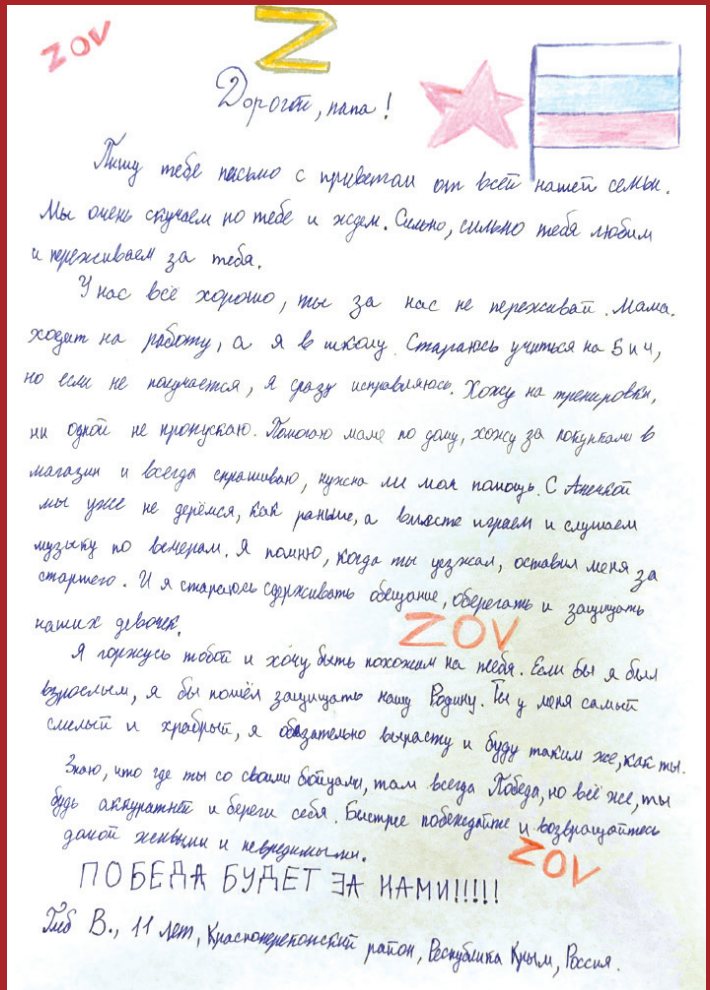 ZOV
Z
Дорогой, папа!
Пишу тебе письмо с приветом от всей нашей семьи.
Мы очень скучаем по тебе и ждем. Сильно, сильно тебя любим
и переживаем за тебя.
У нас всё хорошо, ты за нас не переживай. Мама
ходит на работу, а я в школу. Стараюсь учиться на 5 и 4,
но если не получается, я сразу исправляюсь. Хожу на тренировки,
ни одной не пропускаю. Помогаю маме по дому, хожу за покупками в
магазин и всегда спрашиваю, нужна ли моя помощь. С Анечкой
мы уже не дерёмся, как раньше, а вместе играем и слушаем
музыку по вечерам. Я помню, когда ты уезжал, оставил меня за
старшего. И я стараюсь сдерживать обещание, оберегать и защищать
наших девочек.
ZOV
Я горжусь тобой и хочу быть похожим на тебя. Если бы я был
взрослым, я бы пошёл защищать нашу Родину. Ты у меня самый
смелый и храбрый, я обязательно вырасту и буду таким же, как ты.
Знаю, что где ты со своими бойцами, там всегда Победа, но всё же, ты
будь аккуратней и береги себя. Быстрее побеждайте и возвращайтесь
домой живыми и невредимыми.
ZOV
ПОБЕДА БУДЕТ ЗА НАМИ!!!!!
Глеб В., 11 лет, Красноперекопский район, Республика Крым, Россия.